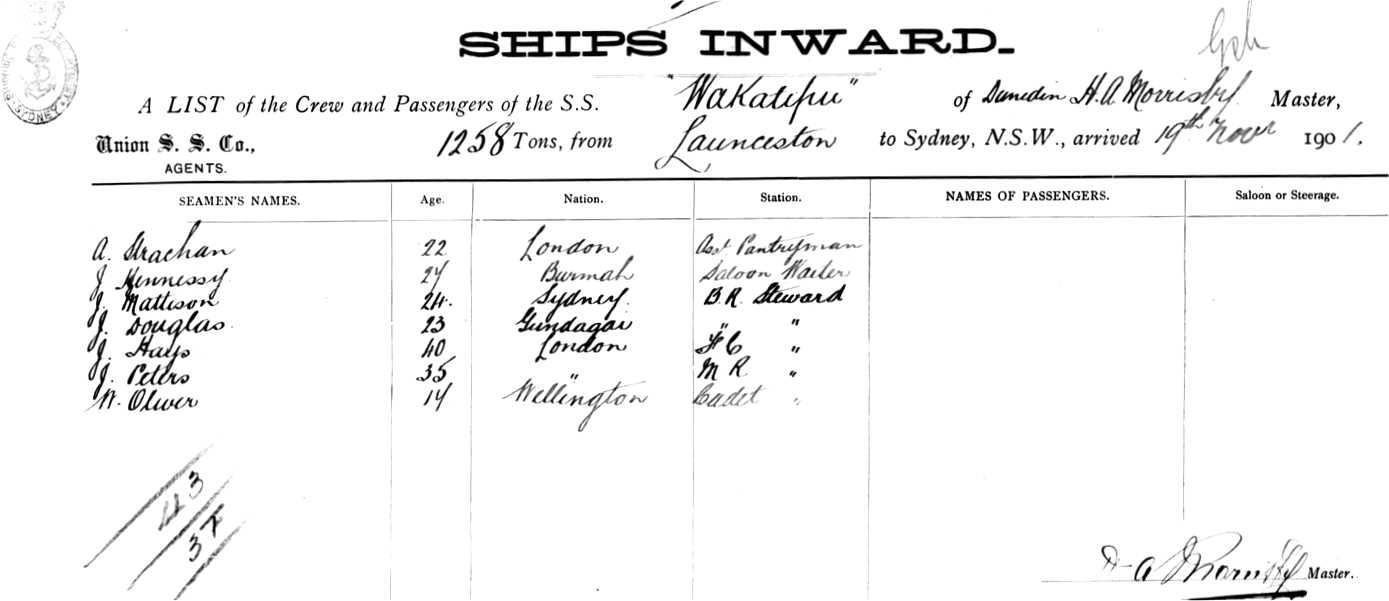 SHIPS INWARD.
A LIST of the Crew and Passengers of the S.S. "Wakatipu" of Dunedin H. A Morrisby Master,
Union S. S. Co., 1258 Tons, from Launceston to Sydney, N.S.W., arrived 19th Novr 1901.
AGENTS.
SEAMEN'S NAMES. Age. Nation. Station. NAMES OF PASSENGERS. Saloon or Steerage.
A. Strachan 22 London Asst Pantryman
J Hennessy 27 Burmah Saloon Waiter
J. Mattison 24. Sydney. B. R. Steward
J. Douglas 23 Gundagai " "
J. Hays 40 London "
J. Peters 35 " M R "
W. Oliver 14 Wellington Cadet "
43
37
H A Morrisby Master.